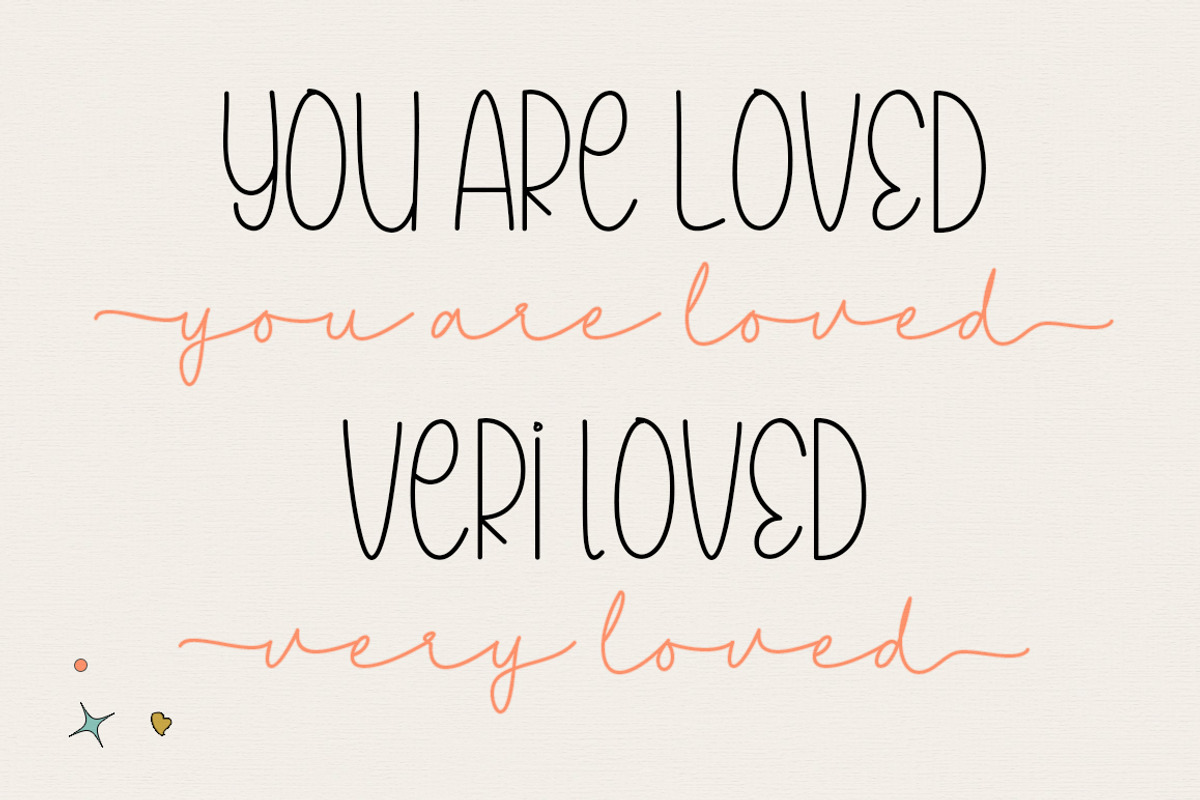 YOU ARe LOVED
you are loved
VeRi lOVED
very loved